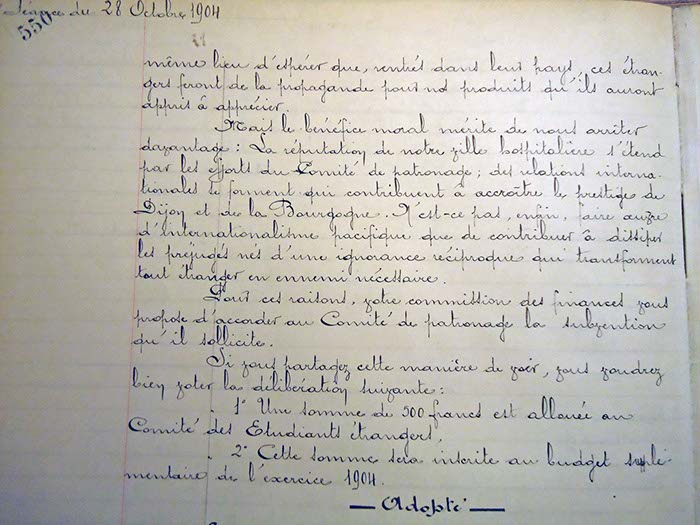 Séance du 28 Octobre 1904
550
même lieu d'espérer que, rentrés dans leur pays, ces étran-
gers feront de la propagande pour nos produits qu'ils auront
appris à apprécier.
Mais le bénéfice moral mérite de nous arrêter
davantage : La réputation de notre ville hospitalière s'étend
par les efforts du Comité de patronage ; des relations interna-
tionales se forment qui contribuent à accroître le prestige de
Dijon et de la Bourgogne. N'est-ce pas, enfin, faire œuvre
d'internationalisme pacifique que de contribuer à dissiper
les préjugés nés d'une ignorance réciproque qui transforment
tout étranger en ennemi nécessaire.
Pour ces raisons, votre commission des finances vous
propose d'accorder au Comité de patronage la subvention
qu'il sollicite.
Si vous partagez cette manière de voir, vous voudrez
bien voter la délibération suivante :
1° Une somme de 500 francs est allouée au
Comité des Etudiants étrangers,
2° Cette somme sera inscrite au budget suplé-
mentaire de l'exercice 1904.
— Adopté —